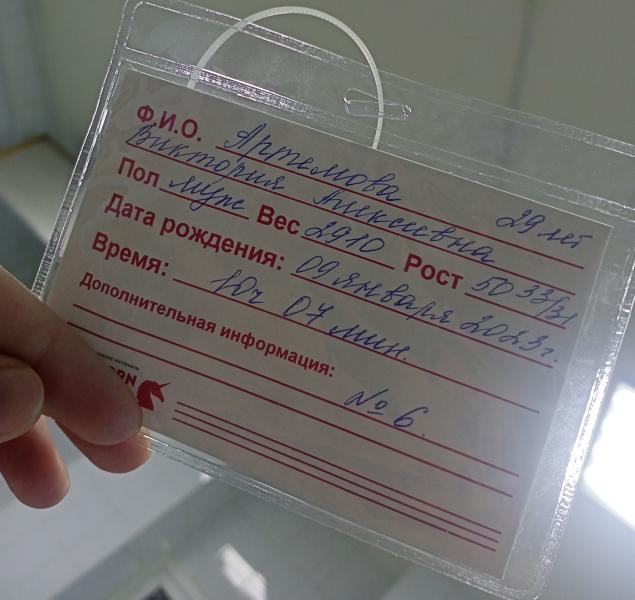 Ф.И.О. Артемова
Виктория Алексеевна 29 лет
Пол муж Вес 2910 Рост 50 33/31
Дата рождения: 09 января 2023г.
Время: 10ч 07 мин.
Дополнительная информация:
№ 6.